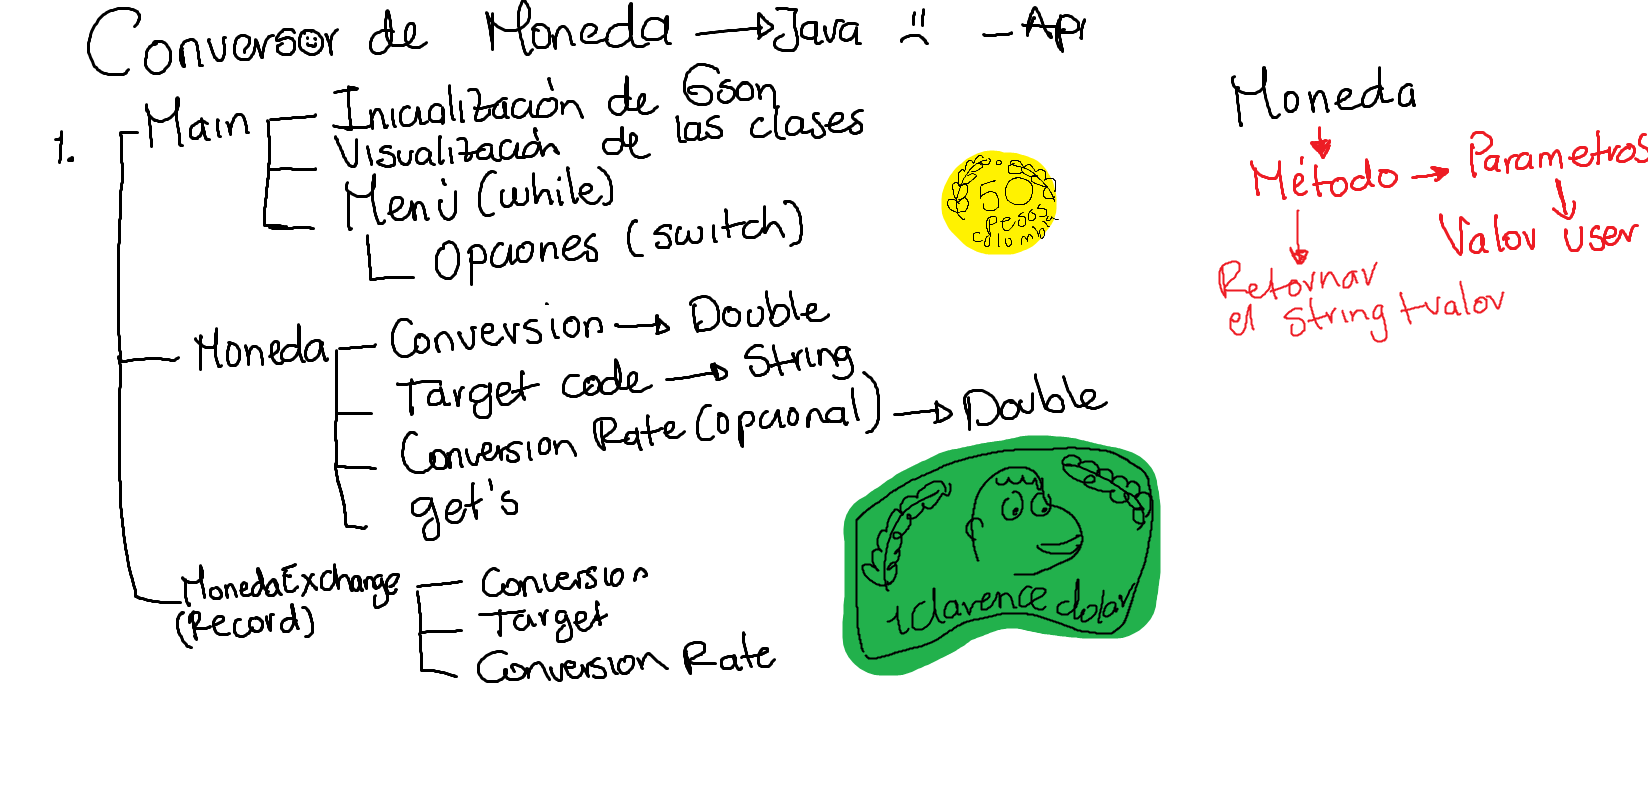 Conversor de Moneda → Java - Api
1.
Main
Inicialización de Gson
Visualización de las clases
Menú (while)
Opciones (switch)
Moneda
Conversion → Double
Target code → String
Conversion Rate (opcional) → Double
get's
MonedaExchange
(Record)
Conversion
Target
Conversion Rate
50
Pesos
colombia
1 Clarence dolar
Moneda
Método → Parametros
Valor user
Retornar
el String + valor